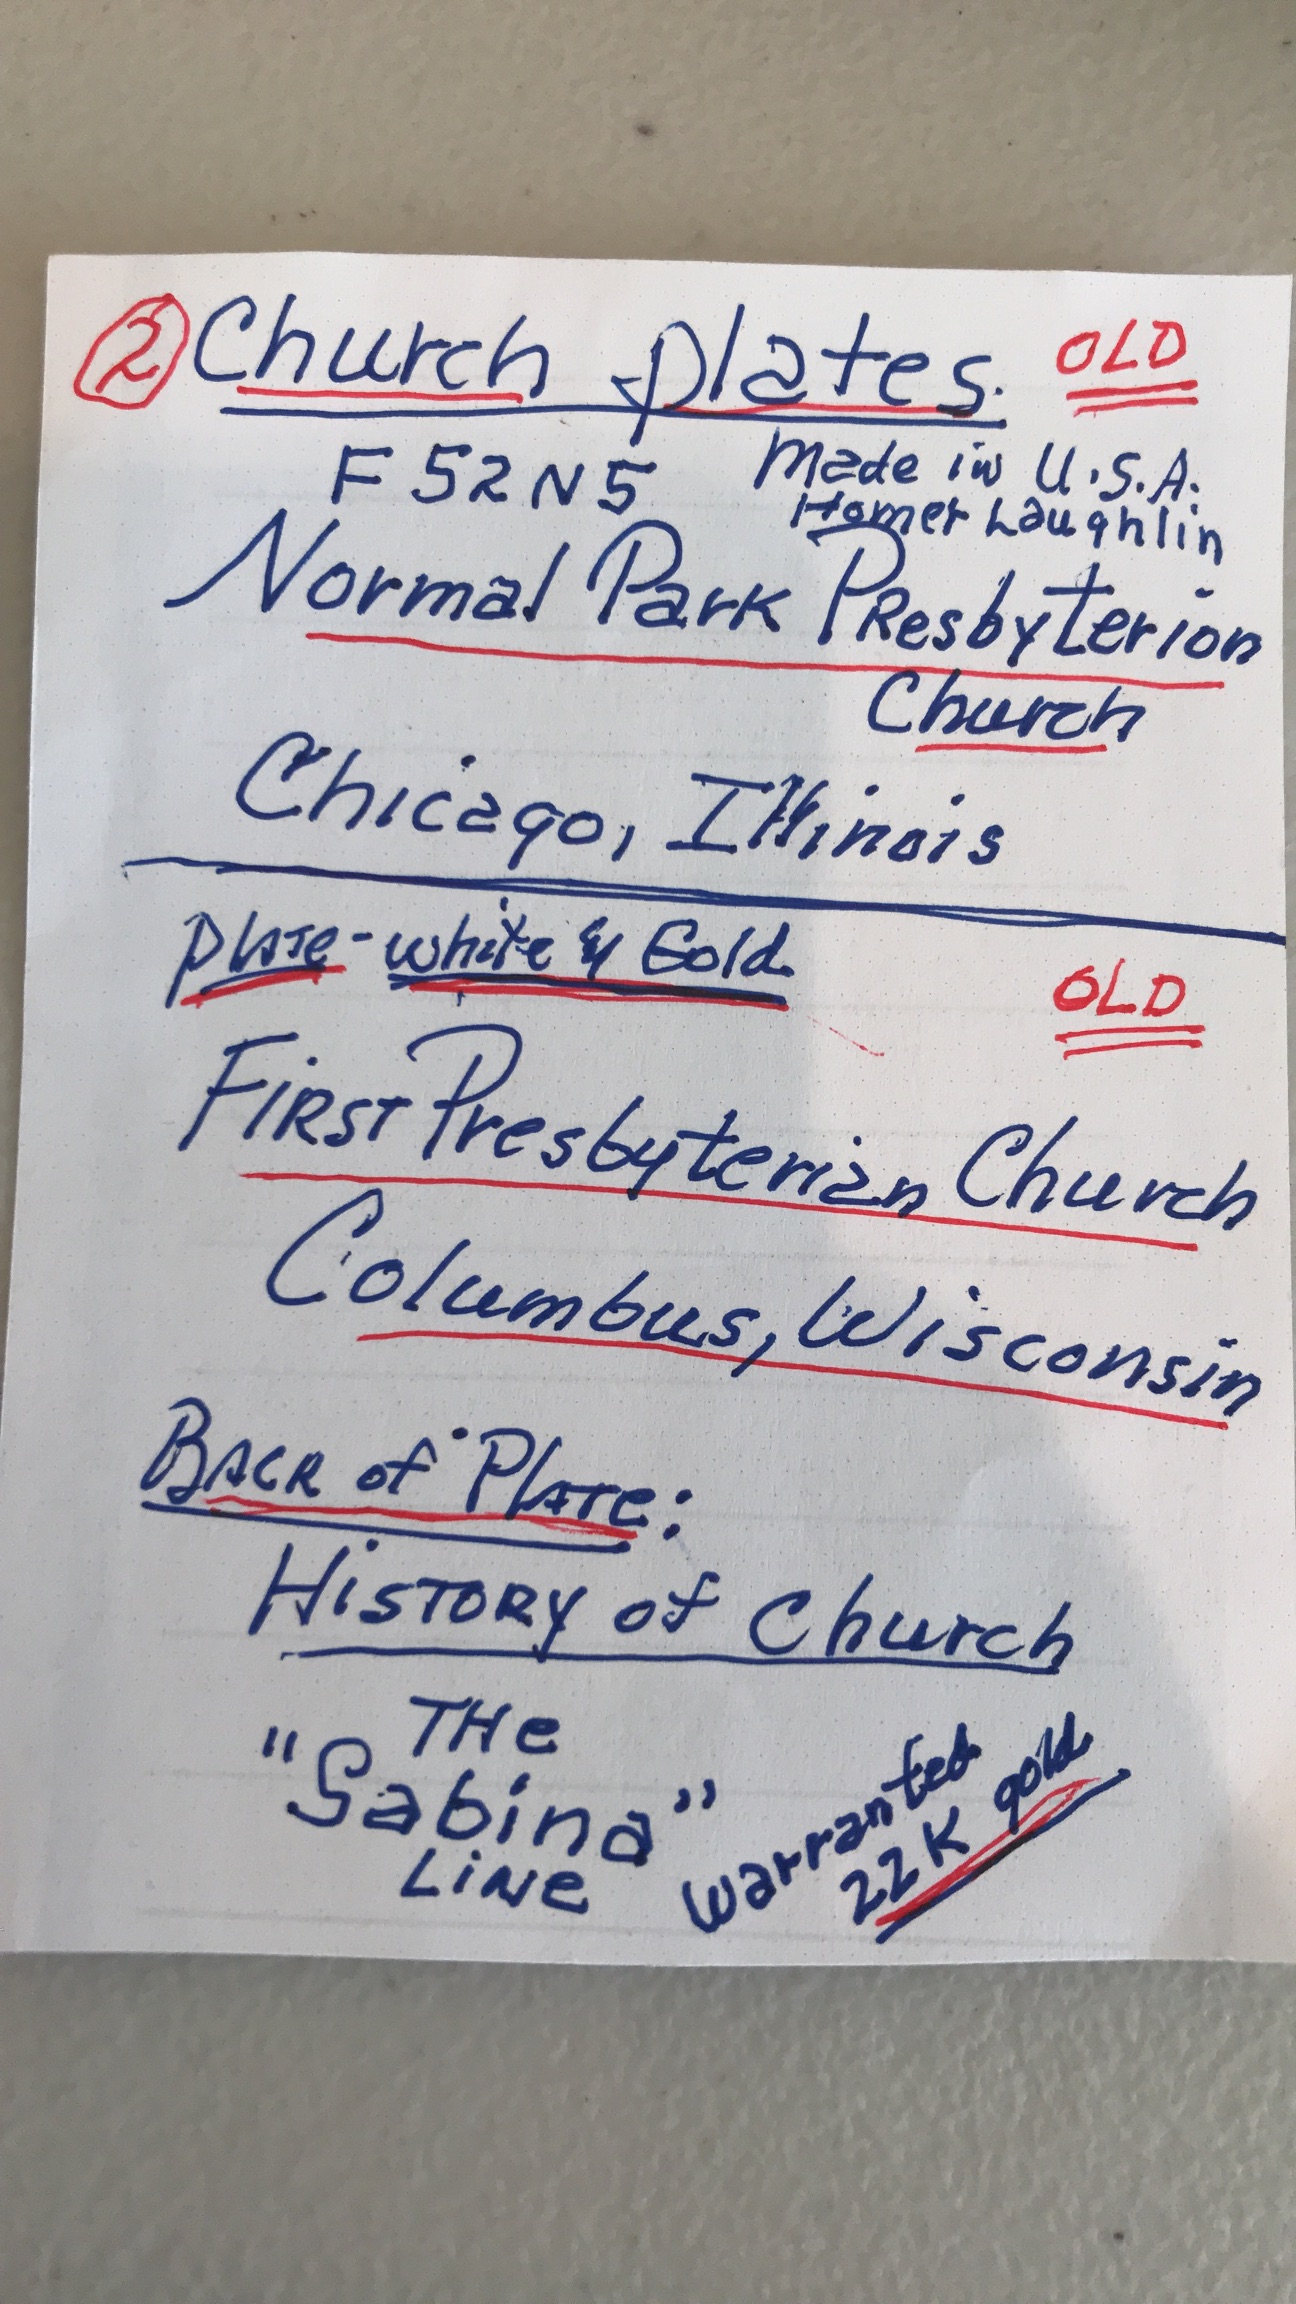 2 Church plates. OLD
F52N5 Made in U.S.A.
Homer Laughlin
Normal Park Presbyterion
Church
Chicago, Illinois
Plate - white & Gold.
OLD
First Presbyterian Church
Columbus, Wisconsin
Back of Plate:
History of Church
THe
"Sabina"
Line
Warranted
22K gold